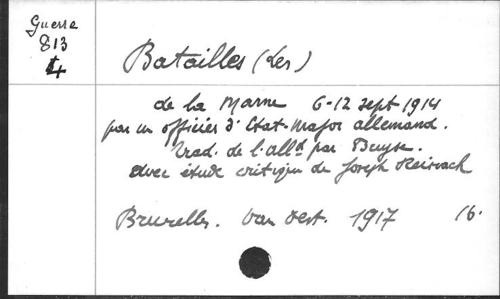 Guerre
813
4
Batailles (Les)
de la Marne 6-12 sept 1914
par un officier d'Etat-Major allemand.
Trad. de l'alld par Buyse.
avec étude critique de Joseph Reinach
Bruxelles. Van Oest. 1917 16.